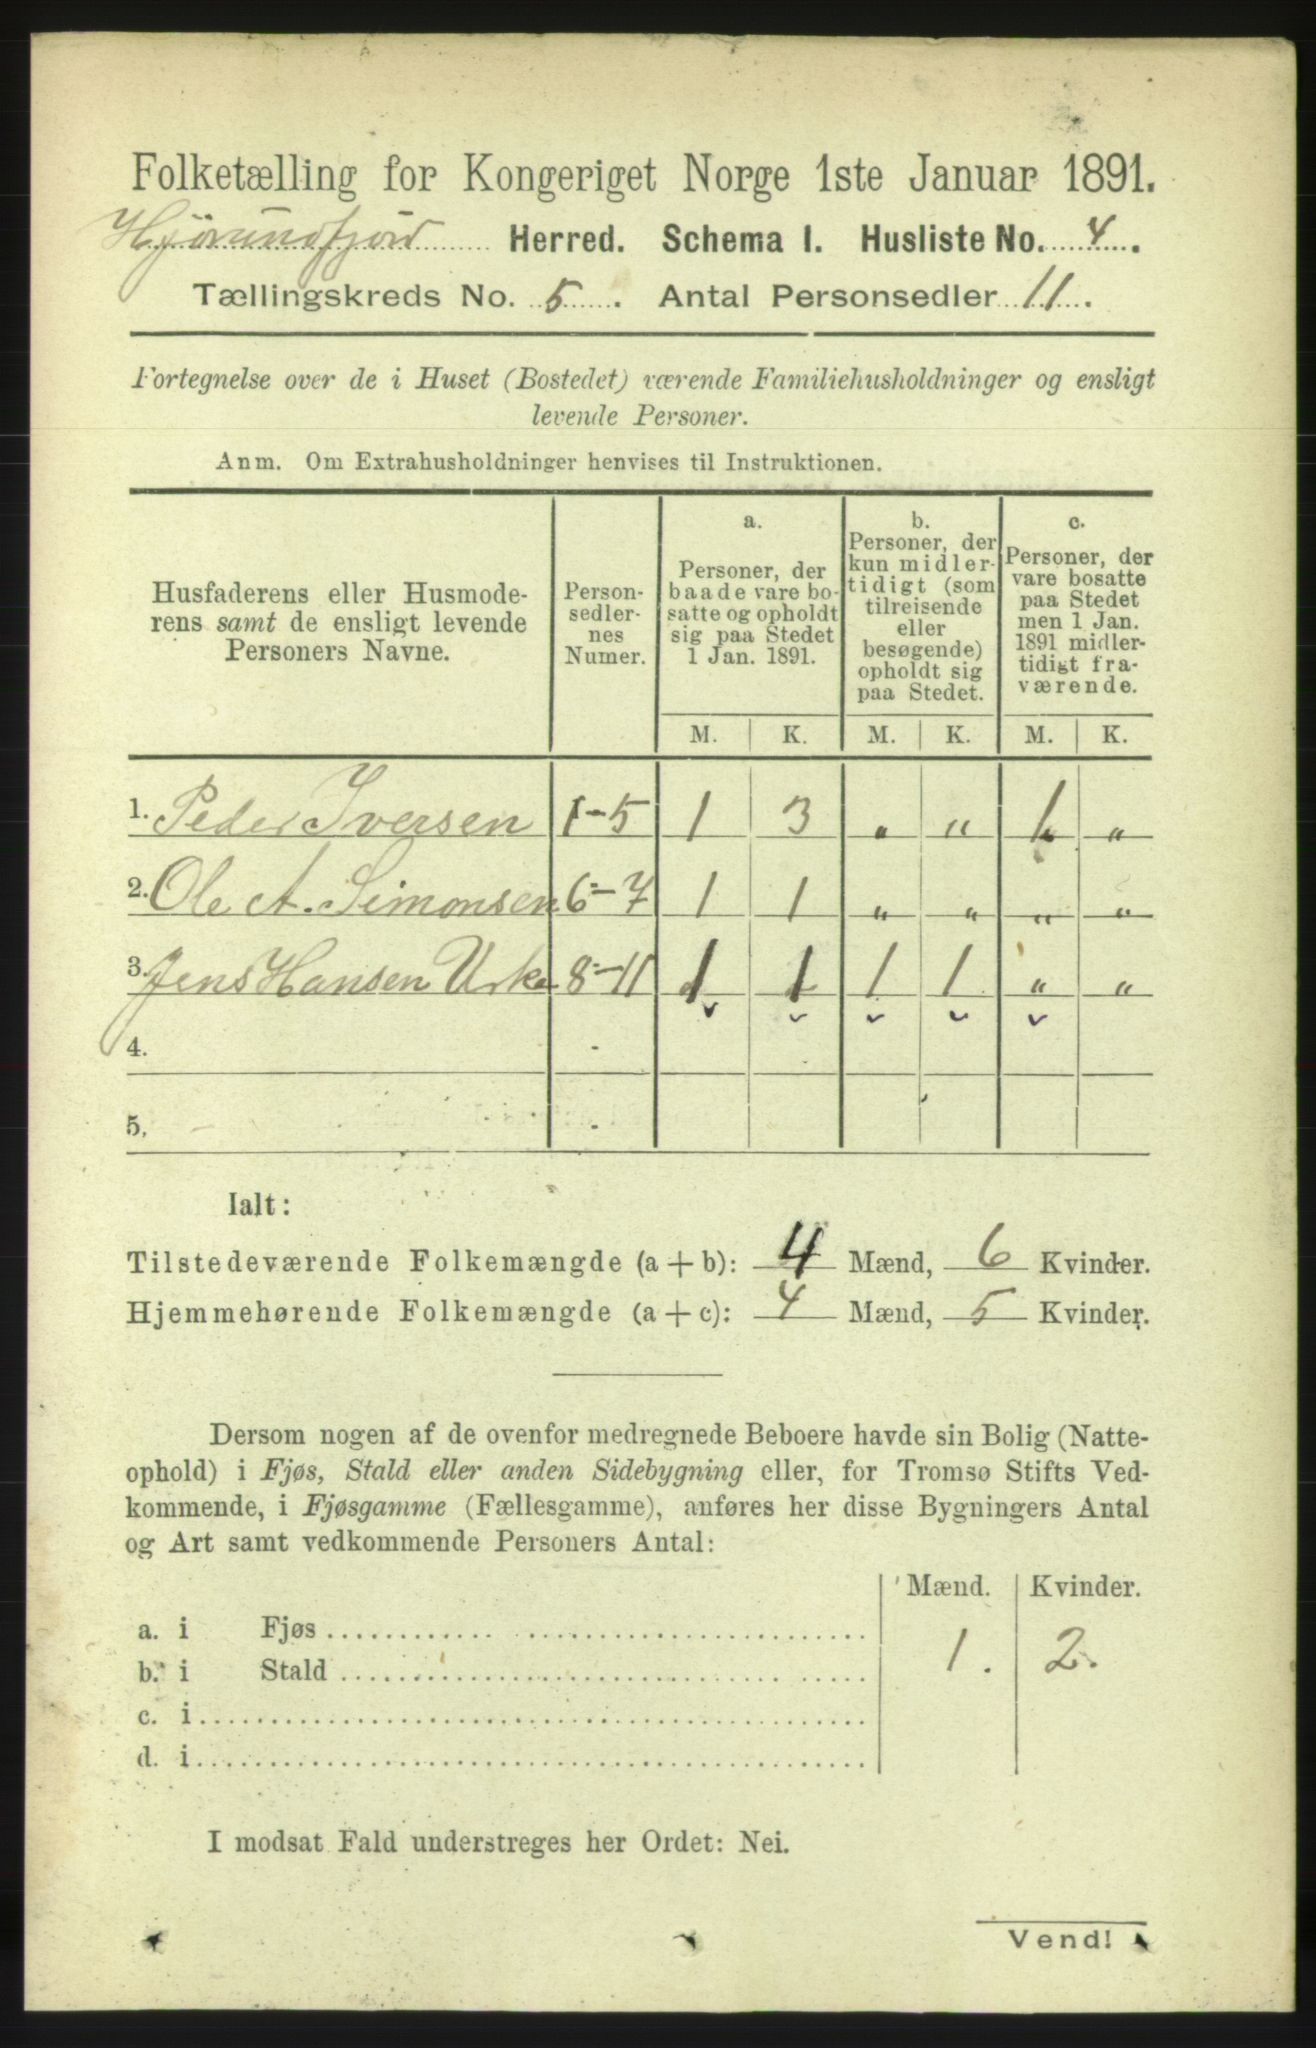 Folketælling for Kongeriget Norge 1ste Januar 1891.
Hjørundfjord Herred. Schema I. Husliste No. 4.
Tællingskreds No. 5. Antal Personsedler 11.
Fortegnelse over de i Huset (Bostedet) værende Familiehusholdninger og ensligt
levende Personer.
Anm. Om Extrahusholdninger henvises til Instruktionen.
Husfaderens eller Husmode-
rens samt de ensligt levende
Personers Navne.
Person-
sedler-
nes
Numer.
a.
Personer, der
baade vare bo-
satte og opholdt
sig paa Stedet
1 Jan. 1891.
b.
Personer, der
kun midler-
tidigt (som
tilreisende
eller
besøgende)
opholdt sig
paa Stedet.
c.
Personer, der
vare bosatte
paa Stedet
men 1 Jan.
1891 midler-
tidigt fra-
værende.
M. K. M. K. M. K.
1. Peder Iversen 1-5 1 3 " " 1 "
2. Ole A. Simonsen 6-7 1 1 " " " "
3. Jens Hansen Urke 8-11 1 1 1 1 " "
4. -
5. -
Ialt:
Tilstedeværende Folkemængde (a + b): 4 Mænd, 6 Kvinder.
Hjemmehørende Folkemængde (a + c): 4 Mænd, 5 Kvinder.
Dersom nogen af de ovenfor medregnede Beboere havde sin Bolig (Natte-
ophold) i Fjøs, Stald eller anden Sidebygning eller, for Tromsø Stifts Ved-
kommende, i Fjøsgamme (Fællesgamme), anføres her disse Bygningers Antal
og Art samt vedkommende Personers Antal:
Mænd. Kvinder.
a. i Fjøs
b. i Stald 1. 2.
c. i
d. i
I modsat Fald understreges her Ordet: Nei.
Vend!